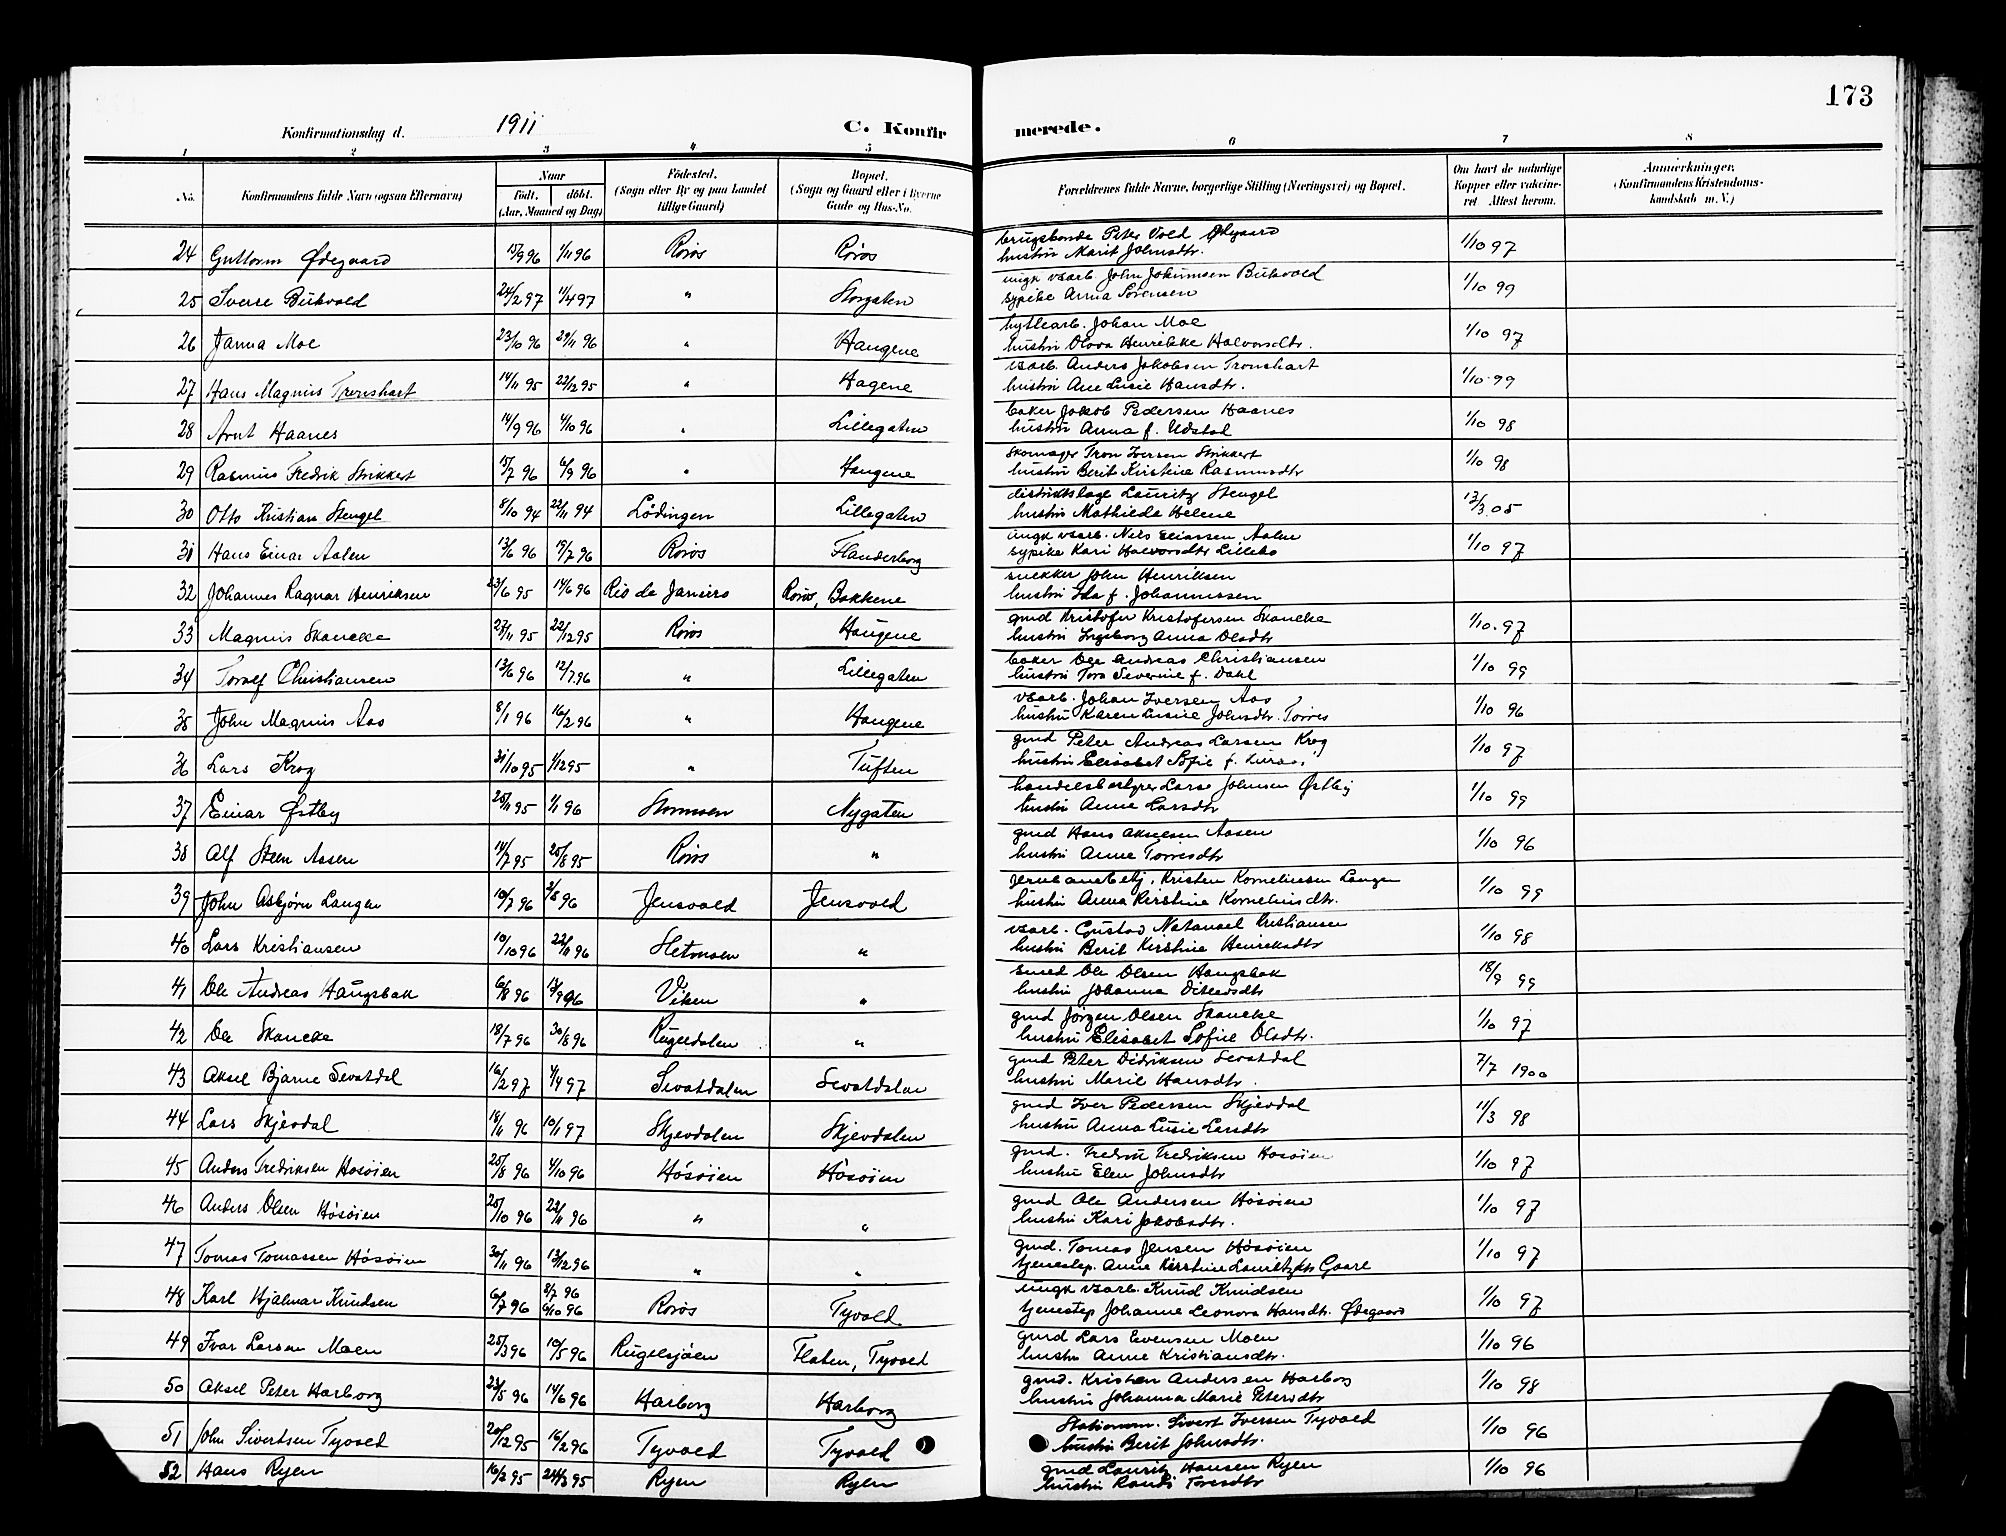 173
Konfirmationsdag d. 1911 C. Konfirmerede.
1 2 3 4 5 6 7 8
No. Konfirmandens fulde Navn (ogsaa Efternavn) Naar Födt. döbt. (Aar, Maaned og Dag) Födested. (Sogn eller By og paa Landet tillige Gaard) Bopæl. (Sogn og Gaard eller i Byerne Gade og Hus-No. Forældrenes fulde Navne, borgerlige Stilling (Næringsvei) og Bopæl. Om havt de naturlige Kopper eller vakcineret. Attest herom. Anmærkninger. (Konfirmandens Kristendomskundskab m. V.)
24 Guttorm Ødegaard 15/9 96 1/11 96 Röros Röros brugsbonde Peter Vold Ødegaard 1/10 97
hustru Marit Johnsdtr.
25 Sverre Bukvold 24/2 97 11/4 97 " Storgaten ungk vsarb. John Jokumsen Bukvold 1/10 99
sypike Anna Sörensen
26 Janna Moe 23/10 96 29/11 96 " Haugene hyttearb. Johan Moe 1/10 97
hustru Olova Henrikke Halvorsdtr.
27 Hans Magnus Tronshart 14/11 95 22/12 95 " Hagene vsarb. Anders Jakobsen Tronshart 1/10 99
hustru Ane Lusie Hansdtr.
28 Arnt Haanes 14/9 96 4/10 96 " Lillegaten baker Jakob Pedersen Haanes 1/10 98
hustru Anna f. Udstad
29 Rasmus Fredrik Strikkert 15/7 96 6/9 96 " Haugene skomager Tron Iversen Strikkert 1/10 98
hustru Berit Kirstine Rasmusdtr
30 Otto Kristian Stengel 8/10 94 22/11 94 Lödingen Lillegaten distriktslæge Lauritz Stengel 13/3 05
hustru Mathilde Helene
31 Hans Einar Aalen 13/6 96 19/7 96 Röros Flanderborg ungk vsarb. Nils Eliassen Aalen 1/10 97
sypike Kari Halvorsdtr Lillebo
32 Johannes Ragnar Henriksen 23/6 95 14/6 96 Rio de Janeiro Röros, Bakkene snekker John Henriksen
hustru Ida f. Johannessen
33 Magnus Skancke 27/11 95 22/12 95 Röros Haugene gmd Kristofer Kristofersen Skancke 1/10 97
hustru Ingeborg Anna Olsdtr
34 Toralf Christiansen 13/6 96 12/7 96 " Lillegaten baker Ole Andreas Christiansen 1/10 99
hustru Tora Severine f. Dahl
35 John Magnus Aas 8/1 96 16/2 96 " Haugene vsarb. Johan Iversen Aas 1/10 96
hustru Karen Lusie Johnsdtr. Torres
36 Lars Krog 31/10 95 1/12 95 " Tuften gmd Peter Andreas Larsen Krog 1/10 97
hustru Elisabet Sofie f. Luraas
37 Einar Østby 25/11 95 1/1 96 Stormoen Nygaten handelsbestyrer Lars Johnsen Østby 1/10 99
hustru Anne Larsdtr
38 Alf Steen Aasen 14/7 95 25/8 95 Röros " gmd Hans Akselsen Aasen 1/10 96
hustru Anne Torresdtr
39 John Asbjörn Langen 10/7 96 2/8 96 Jensvold Jensvold jernbanebetj. Kristen Korneliusen Langen 1/10 99
hustru Anna Kirstine Korneliusdtr.
40 Lars Kristiansen 10/10 96 22/11 96 Hetmoen " vsarb. Gustav Natanael Kristiansen 1/10 98
hustru Berit Kirstine Henriksdtr
41 Ole Andreas Haugsbak 6/8 96 13/9 96 Viken " smed Ole Olsen Haugsbak 18/9 99
hustru Johanna Ditlevsdtr
42 Ole Skancke 18/7 96 30/8 96 Rugeldalen " gmd Jörgen Olsen Skancke 1/10 97
hustru Elisabet Sofie Olsdtr.
43 Aksel Bjarne Sevatdal 16/2 97 4/4 97 Sevatdalen Sevatdalen gmd Peter Didriksen Sevatdal 7/7 1900
hustru Marie Hansdtr.
44 Lars Skjevdal 18/11 96 10/1 97 Skjevdalen Skjevdalen gmd Iver Pedersen Skjevdal 11/3 98
hustru Anna Lusie Larsdtr
45 Anders Fredriksen Hosöien 25/8 96 4/10 96 Hösöien Hösöien gmd. Fredrik Fredriksen Hosöien 1/10 97
hustru Elen Johnsdtr
46 Anders Olsen Hösöien 25/10 96 22/11 96 " " gmd Ole Andersen Hösöien 1/10 97
hustru Kari Jakobsdtr.
47 Tomas Tomassen Hösöien 30/11 96 13/12 96 " " gmd. Tomas Jensen Hösöien 1/10 97
tjenestep. Anne Kirstine Lauritzdtr Gaare
48 Karl Hjalmar Knudsen 6/7 96 8/7 96 6/10 96 Röros Tyvold ungk vsarb. Knud Knudsen 1/10 97
tjenestep Johanne Leonora Hansdtr. Ødegaard
49 Ivar Larsen Moen 25/3 96 10/5 96 Rugelsjöen Flaten, Tyvold gmd Lars Evensen Moen 1/10 96
hustru Anne Kristiansdtr.
50 Aksel Peter Harborg 23/5 96 14/6 96 Harborg Harborg gmd. Kristen Andersen Harborg 1/10 98
hustru Johanna Marie Petersdtr
51 John Sivertsen Tyvold 20/12 95 16/2 96 Tyvold Tyvold Stationsm. Sivert Iversen Tyvold 1/10 96
hustru Berit Johnsdtr.
52 Hans Ryen 16/2 95 24/3 95 Ryen Ryen gmd Lauritz Hansen Ryen 1/10 96
hustru Randi Toresdtr